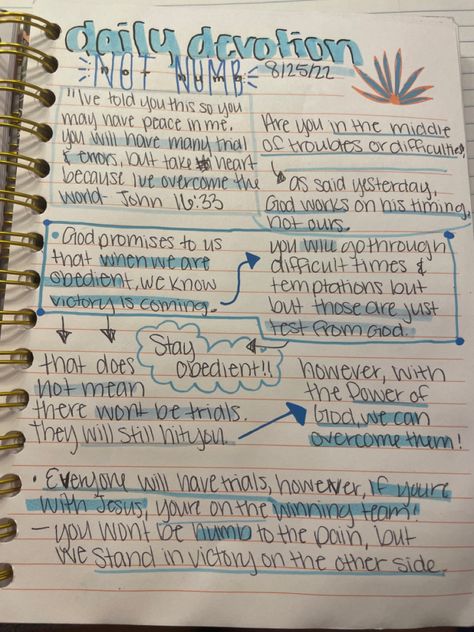 daily devotion
NOT NUMB
8/25/22
"I've told you this so you
may have peace in me.
you will have many trial
& errors, but take heart
because I've overcome the
world - John 16:33
Are you in the middle
of troubles or difficulties!
as said yesterday,
God works on his timing,
not ours.
• God promises to us
that when we are
obedient, we know
victory is coming.
you will go through
difficult times &
temptations but
but those are just
test from God.
Stay
obedient!!
that does
not mean
there wont be trials.
They will still hit you.
however, with
the Power of
God, we can
overcome them!
• Everyone will have trials, however, if youre
with Jesus, youre on the winning team!
- you wont be numb to the pain, but
we stand in victory on the other side.